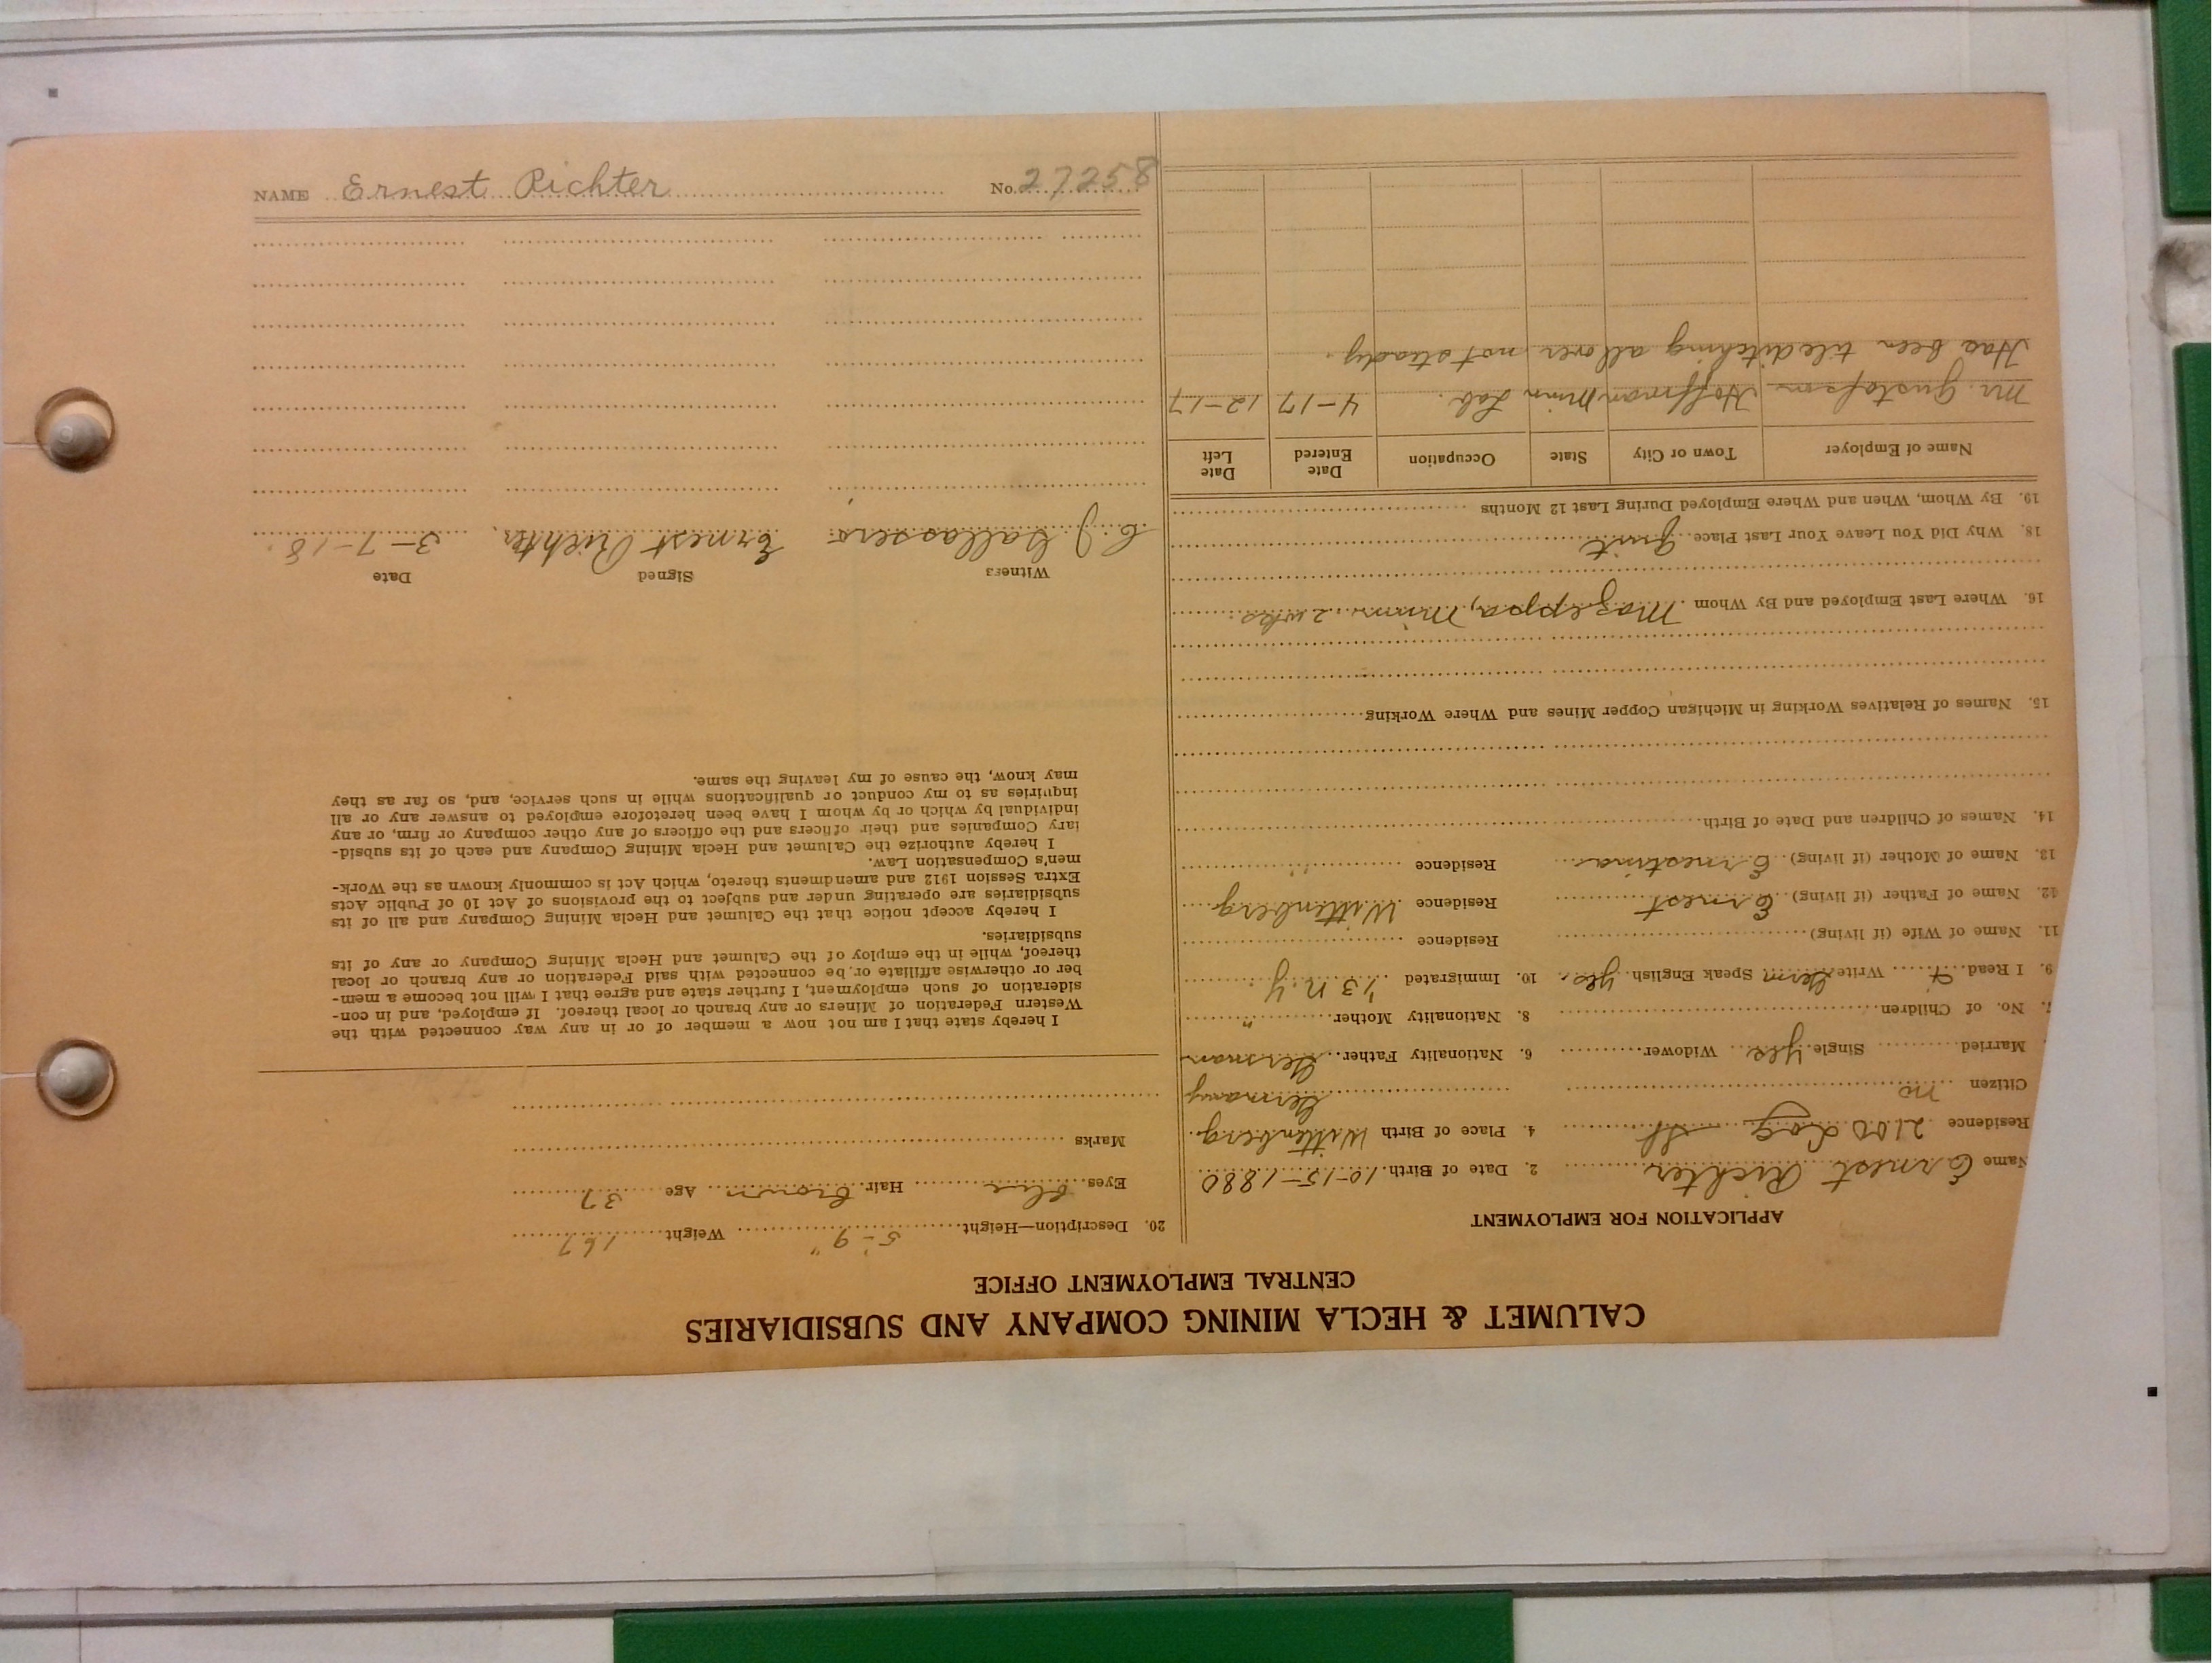 CALUMET & HECLA MINING COMPANY AND SUBSIDIARIES
CENTRAL EMPLOYMENT OFFICE
APPLICATION FOR EMPLOYMENT
Name Ernest Richter 2. Date of Birth 10-15-1880
Residence 2100 Log St 4. Place of Birth Wittenberg
Citizen no Germany
Married Single yes Widower 6. Nationality Father German
7. No. of Children 8. Nationality Mother "
9. I Read & Write Germ Speak English yes. 10. Immigrated '13 N.Y.
11. Name of Wife (if living) Residence
12. Name of Father (if living) Ernest Residence Wittenberg
13. Name of Mother (if living) Ernestina Residence "
14. Names of Children and Date of Birth
15. Names of Relatives Working in Michigan Copper Mines and Where Working
16. Where Last Employed and By Whom Mazeppa, Minn. 2 wks.
18. Why Did You Leave Your Last Place quit
19. By Whom, When and Where Employed During Last 12 Months
Name of Employer Town or City State Occupation Date Entered Date Left
Mr. Gustafson Hoffman Minn Lab. 4-17 12-17
Has been tile ditching all over, not steady.
20. Description—Height 5'-9" Weight 167
Eyes blue Hair brown Age 37
Marks
I hereby state that I am not now a member of or in any way connected with the
Western Federation of Miners or any branch or local thereof. If employed, and in con-
sideration of such employment, I further state and agree that I will not become a mem-
ber or otherwise affiliate or be connected with said Federation or any branch or local
thereof, while in the employ of the Calumet and Hecla Mining Company or any of its
subsidiaries.
I hereby accept notice that the Calumet and Hecla Mining Company and all of its
subsidiaries are operating under and subject to the provisions of Act 10 of Public Acts
Extra Session 1912 and amendments thereto, which Act is commonly known as the Work-
men's Compensation Law.
I hereby authorize the Calumet and Hecla Mining Company and each of its subsid-
iary Companies and their officers and the officers of any other company or firm, or any
individual by which or by whom I have been heretofore employed to answer any or all
inquiries as to my conduct or qualifications while in such service, and, so far as they
may know, the cause of my leaving the same.
Witness Signed Date
C. J. Ernest Richter 3-7-18.
NAME Ernest Richter No. 27258